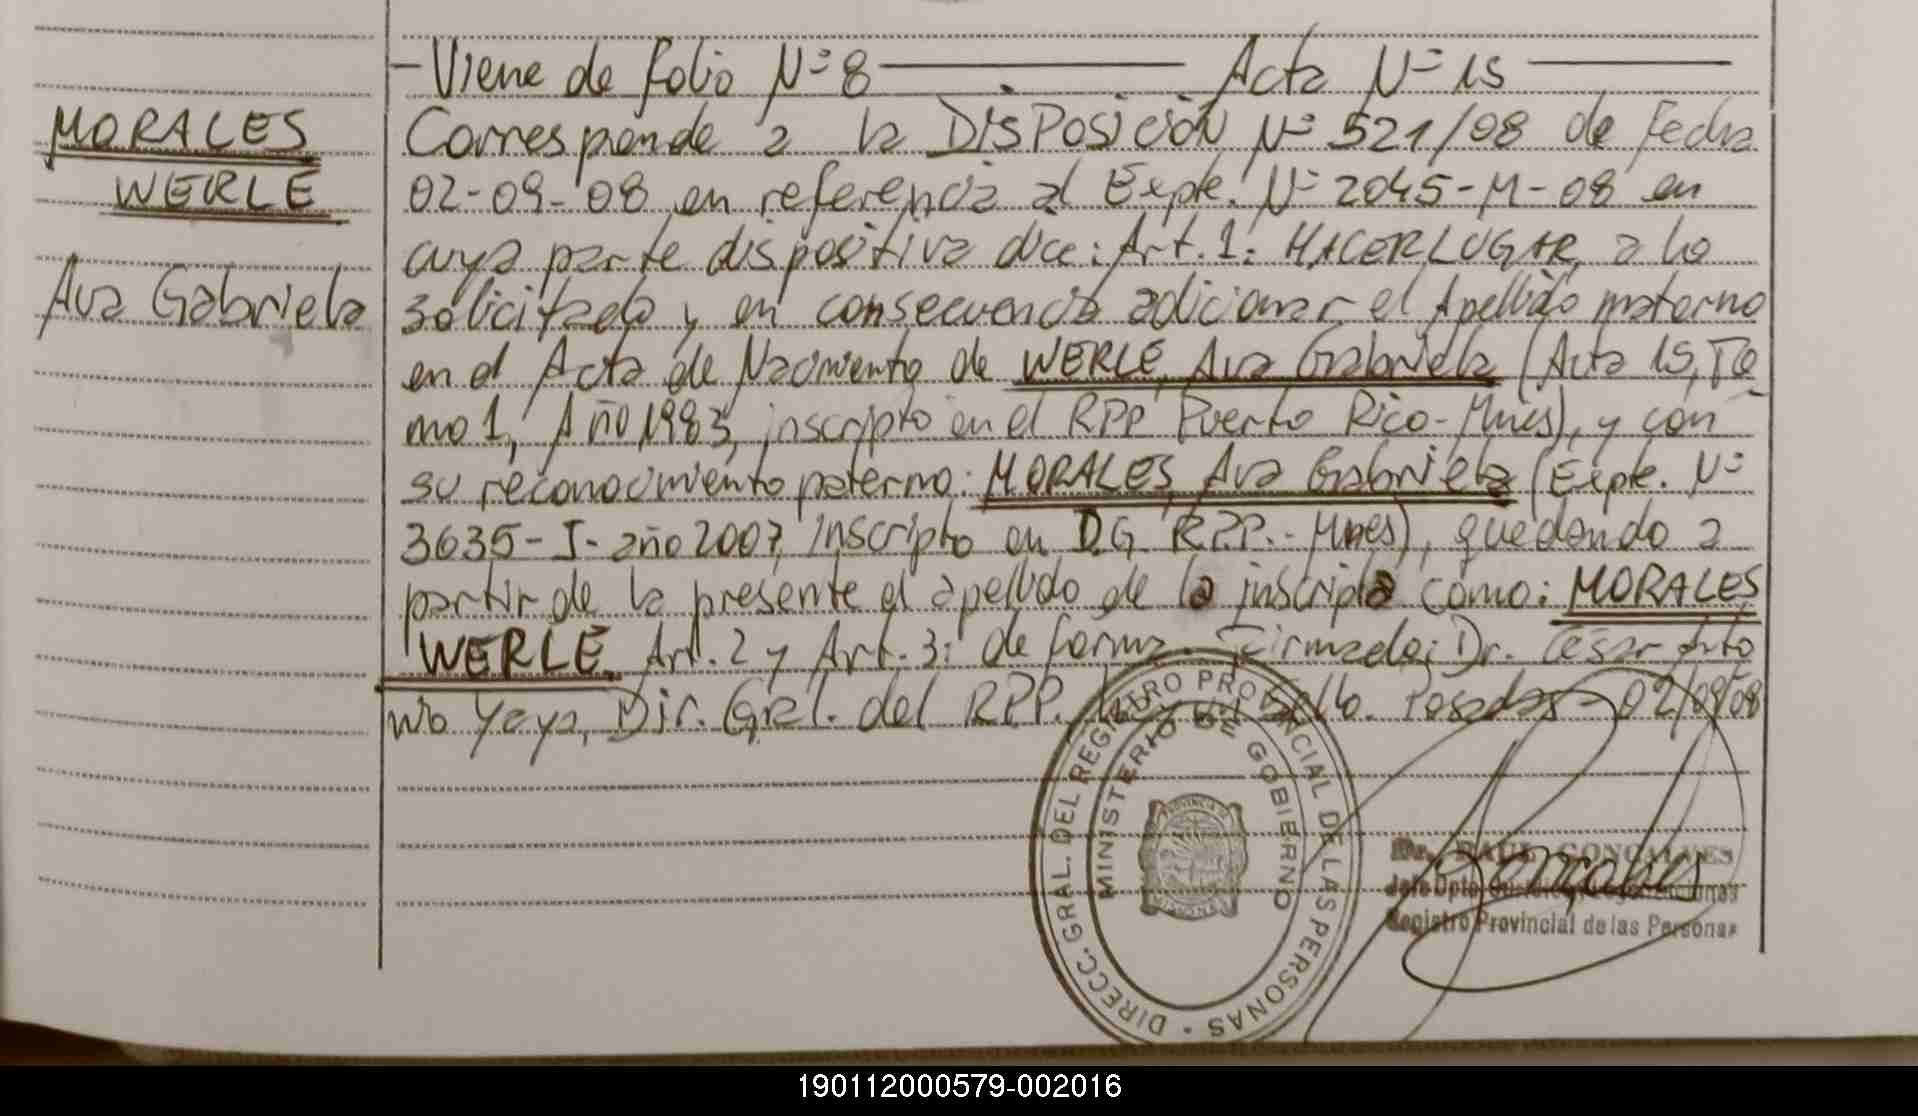 - Viene de folio Nº 8 ——— Acta Nº 15 ———
MORALES
WERLE
Ava Gabriela
Corresponde a la DISPOSICIÓN Nº 521/08 de fecha
02-09-08 en referencia al Expte. Nº 2045-M-08 en
cuya parte dispositiva dice: Art. 1: HACER LUGAR a lo
solicitado y en consecuencia adicionar el Apellido materno
en el Acta de Nacimiento de WERLE, Ava Gabriela (Acta 15, To
mo 1, Año 1983, inscripto en el RPP Puerto Rico-Mnes), y con
su reconocimiento paterno: MORALES, Ava Gabriela (Expte. Nº
3635-I-año 2007, inscripto en D.G. R.P.P.-Mnes), quedando a
partir de la presente el apellido de la inscripta como: MORALES
WERLE. Art. 2 y Art. 3: de forma. Firmado: Dr. César Anto
nio Yaya, Dir. Gral. del RPP. Hay Sello. Posadas 02/09/08
DIRECC. GRAL. DEL REGISTRO PROVINCIAL DE LAS PERSONAS
MINISTERIO DE GOBIERNO
PROVINCIA DE
MISIONES
Dr. RAUL GONCALVES
Jefe Dpto.
Registro Provincial de las Personas
190112000579-002016